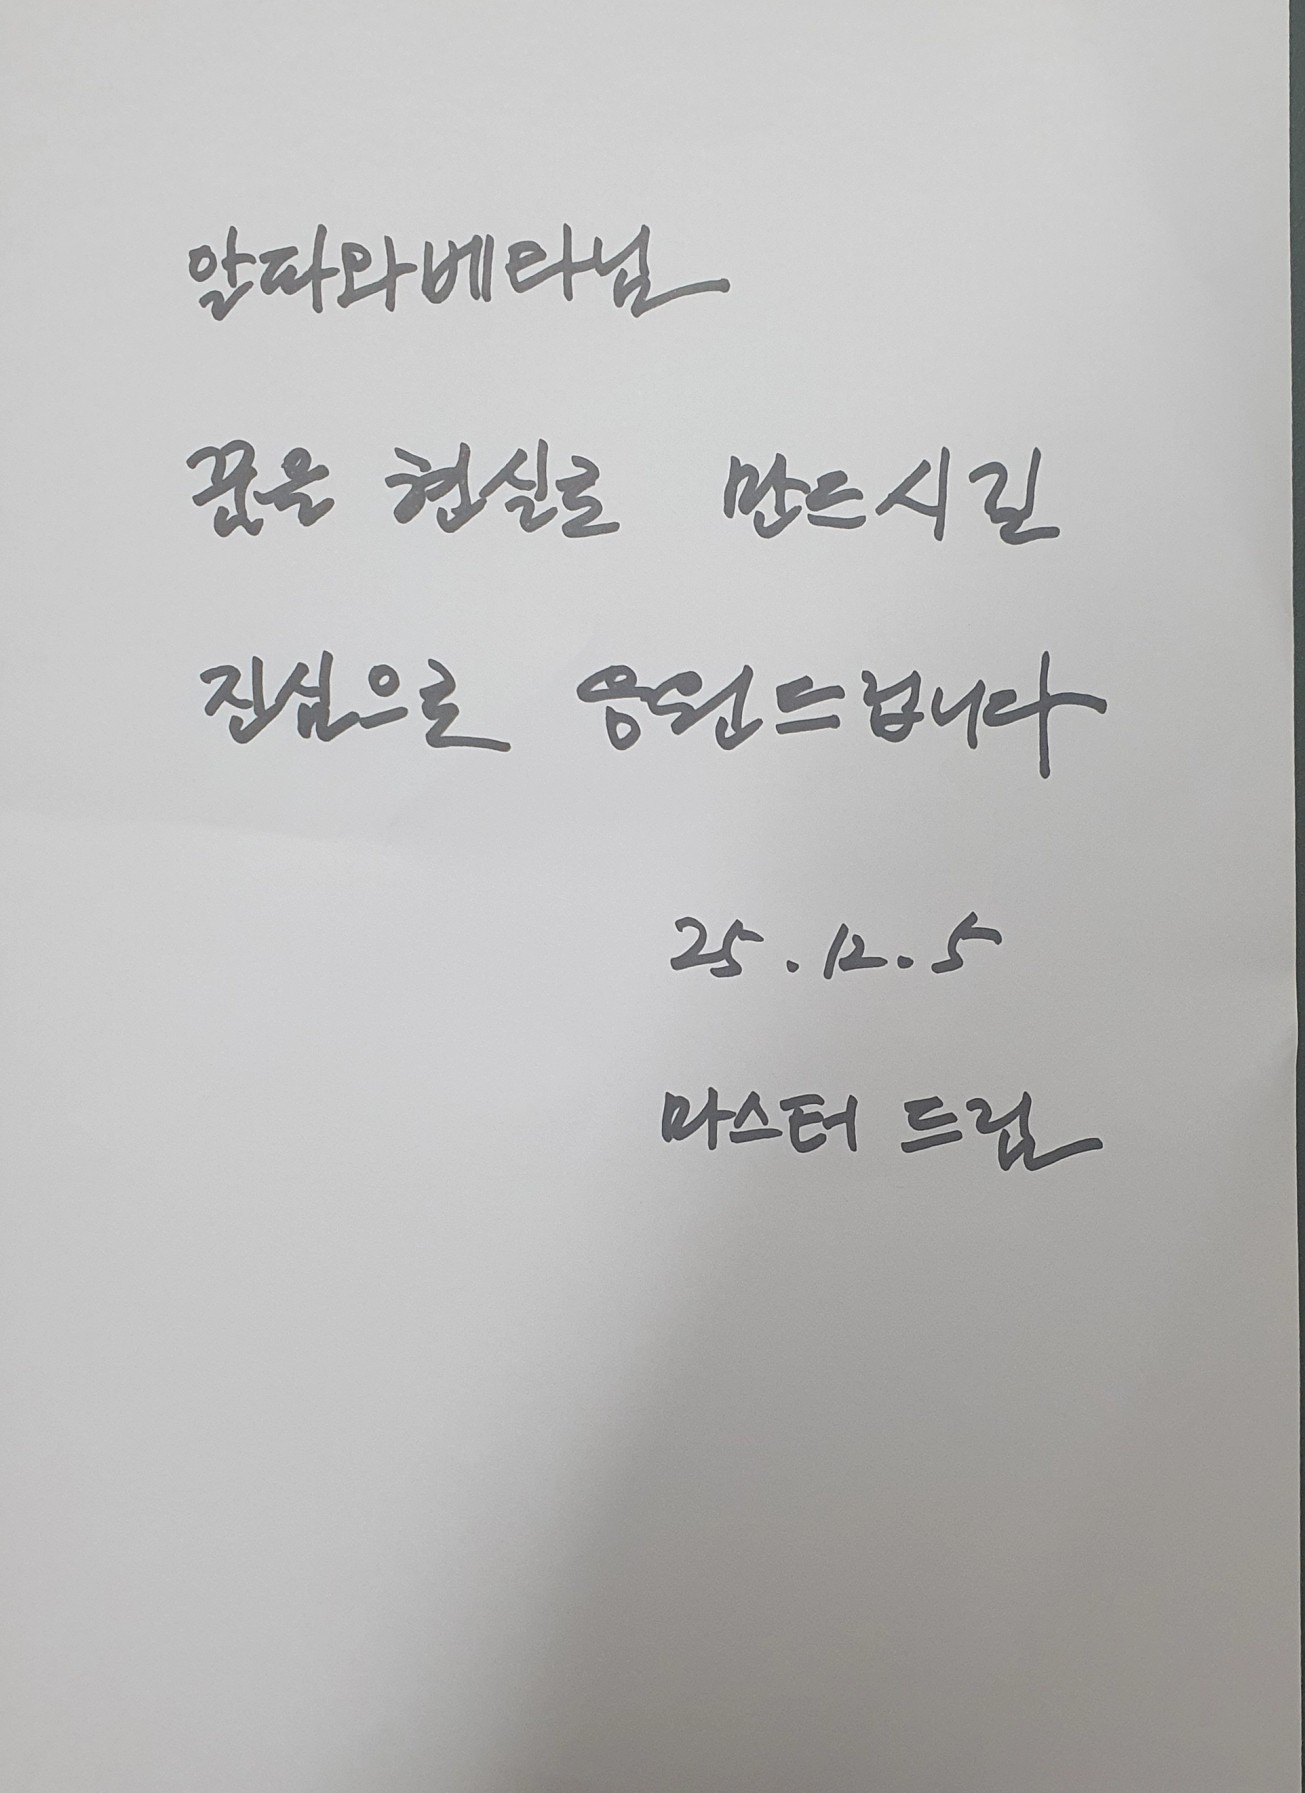 알파와베타님
꿈을 현실로 만드시길
진심으로 응원드립니다
25.12.5
마스터 드림